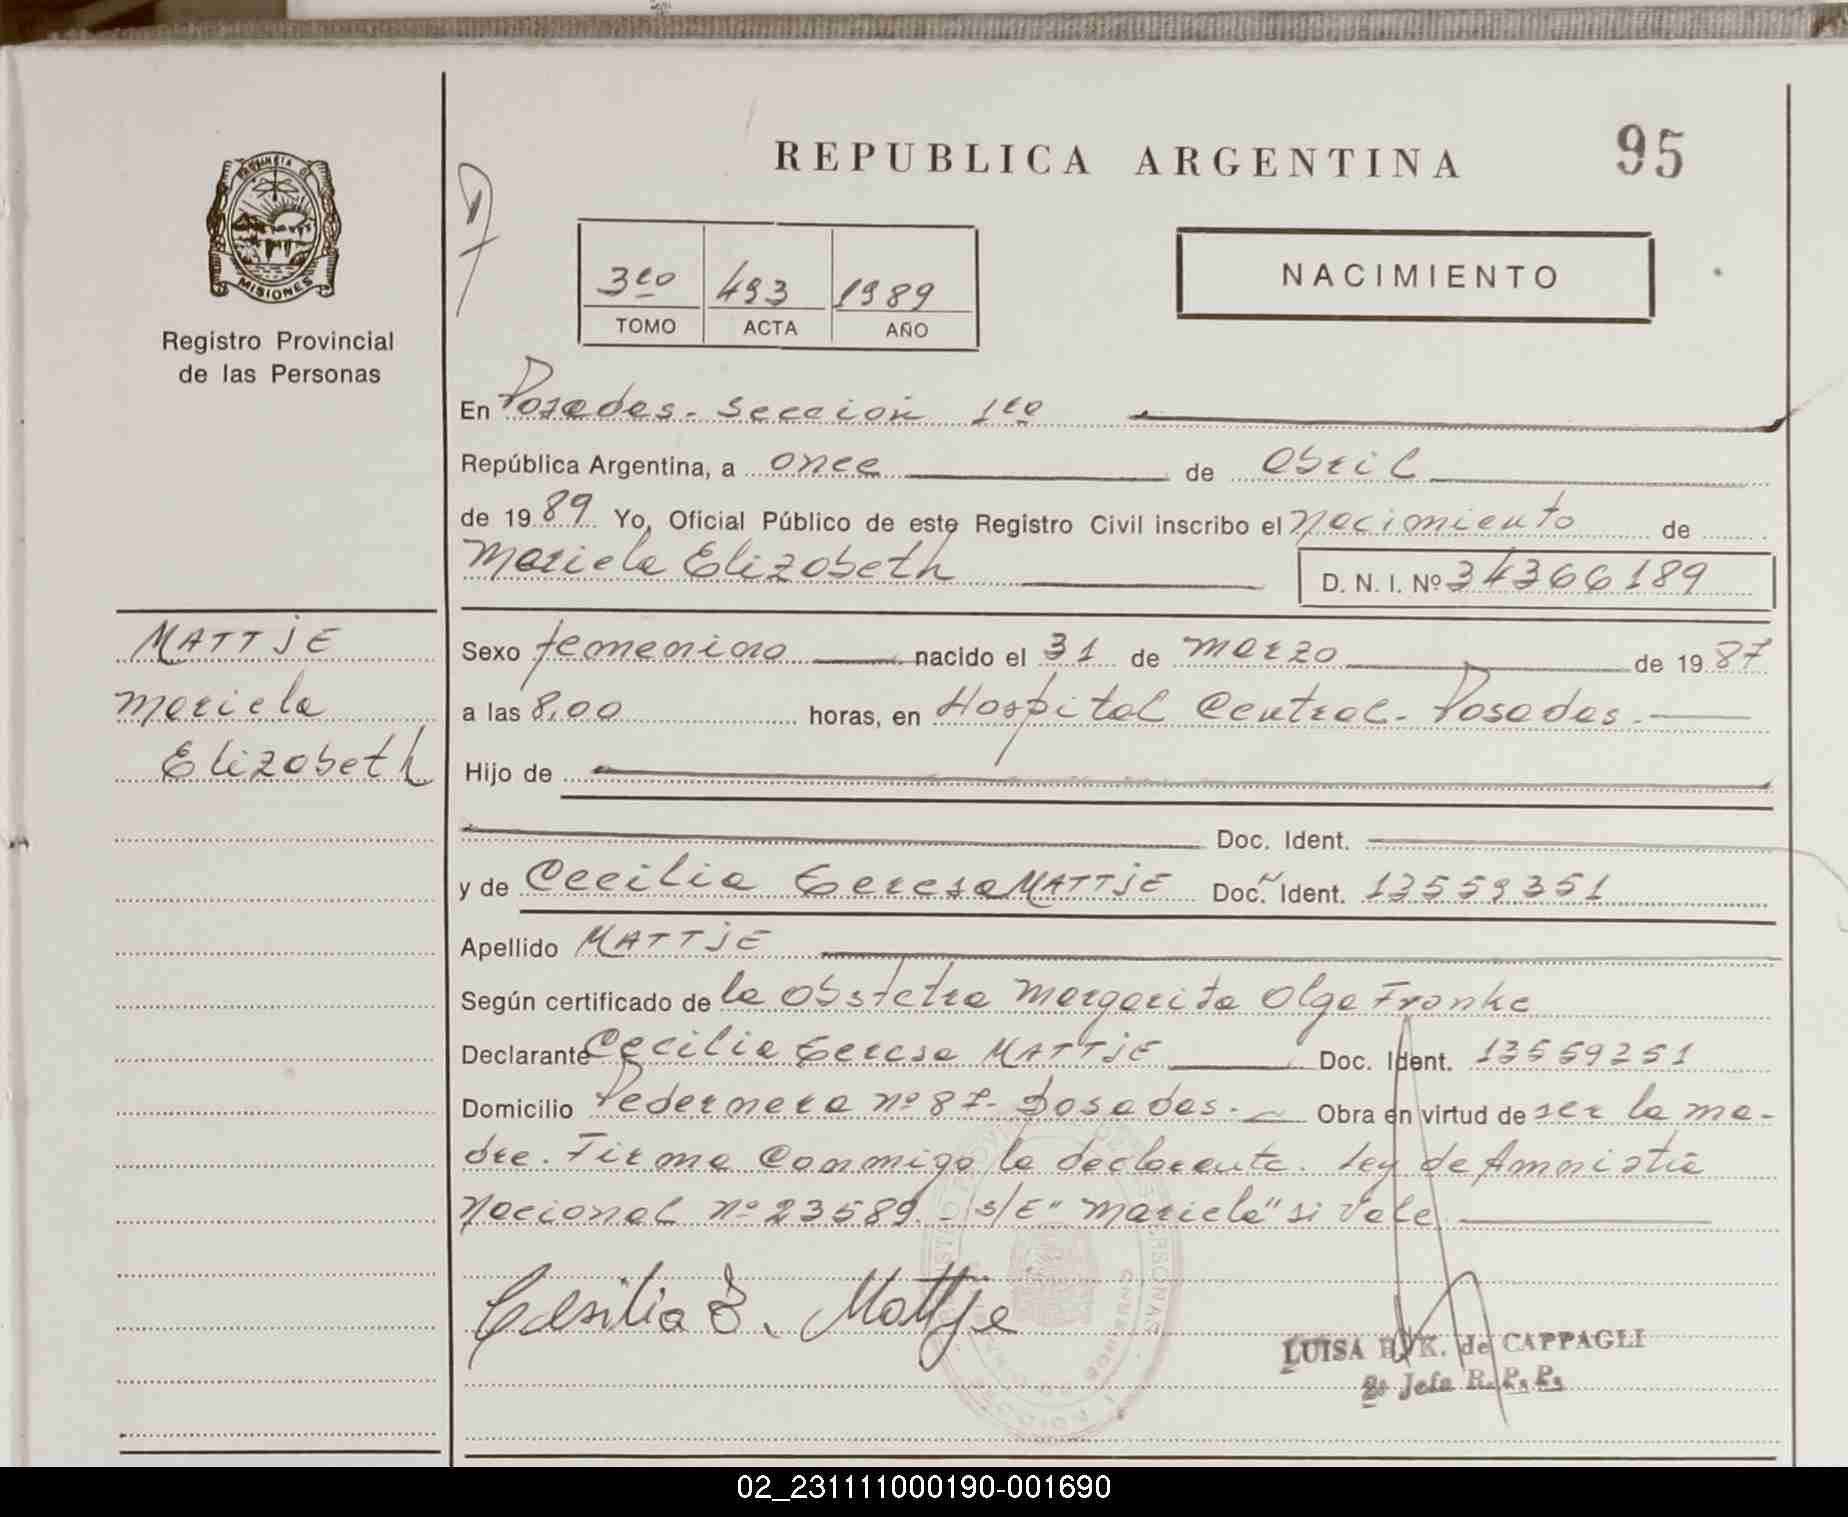 REPUBLICA ARGENTINA
95
PROVINCIA DE
MISIONES
Registro Provincial
de las Personas
3ro 493 1989
TOMO ACTA AÑO
NACIMIENTO
En Posadas - Sección 1ra
República Argentina, a once de Abril
de 1989 Yo, Oficial Público de este Registro Civil inscribo el Nacimiento de
Mariela Elizabeth D. N. I. Nº 34366189
MATTJE
Mariela
Elizabeth
Sexo femenino nacido el 31 de marzo de 1987
a las 8,00 horas, en Hospital Central - Posadas.
Hijo de
Doc. Ident.
y de Cecilia Teresa MATTJE Doc. Ident. 13559351
Apellido MATTJE
Según certificado de la Obstetra Margarita Olga Franke
Declarante Cecilia Teresa MATTJE Doc. Ident. 13559351
Domicilio Pedernera nº 87 - Posadas. Obra en virtud de ser la ma-
dre. Firma Conmigo la declarante. Ley de Amnistia
Nacional nº 23589. - s/E " Mariela" si Vale
Cesilia T. Mattje
LUISA B. K. de CAPPAGLI
2º Jefa R. P. P.
02_231111000190-001690